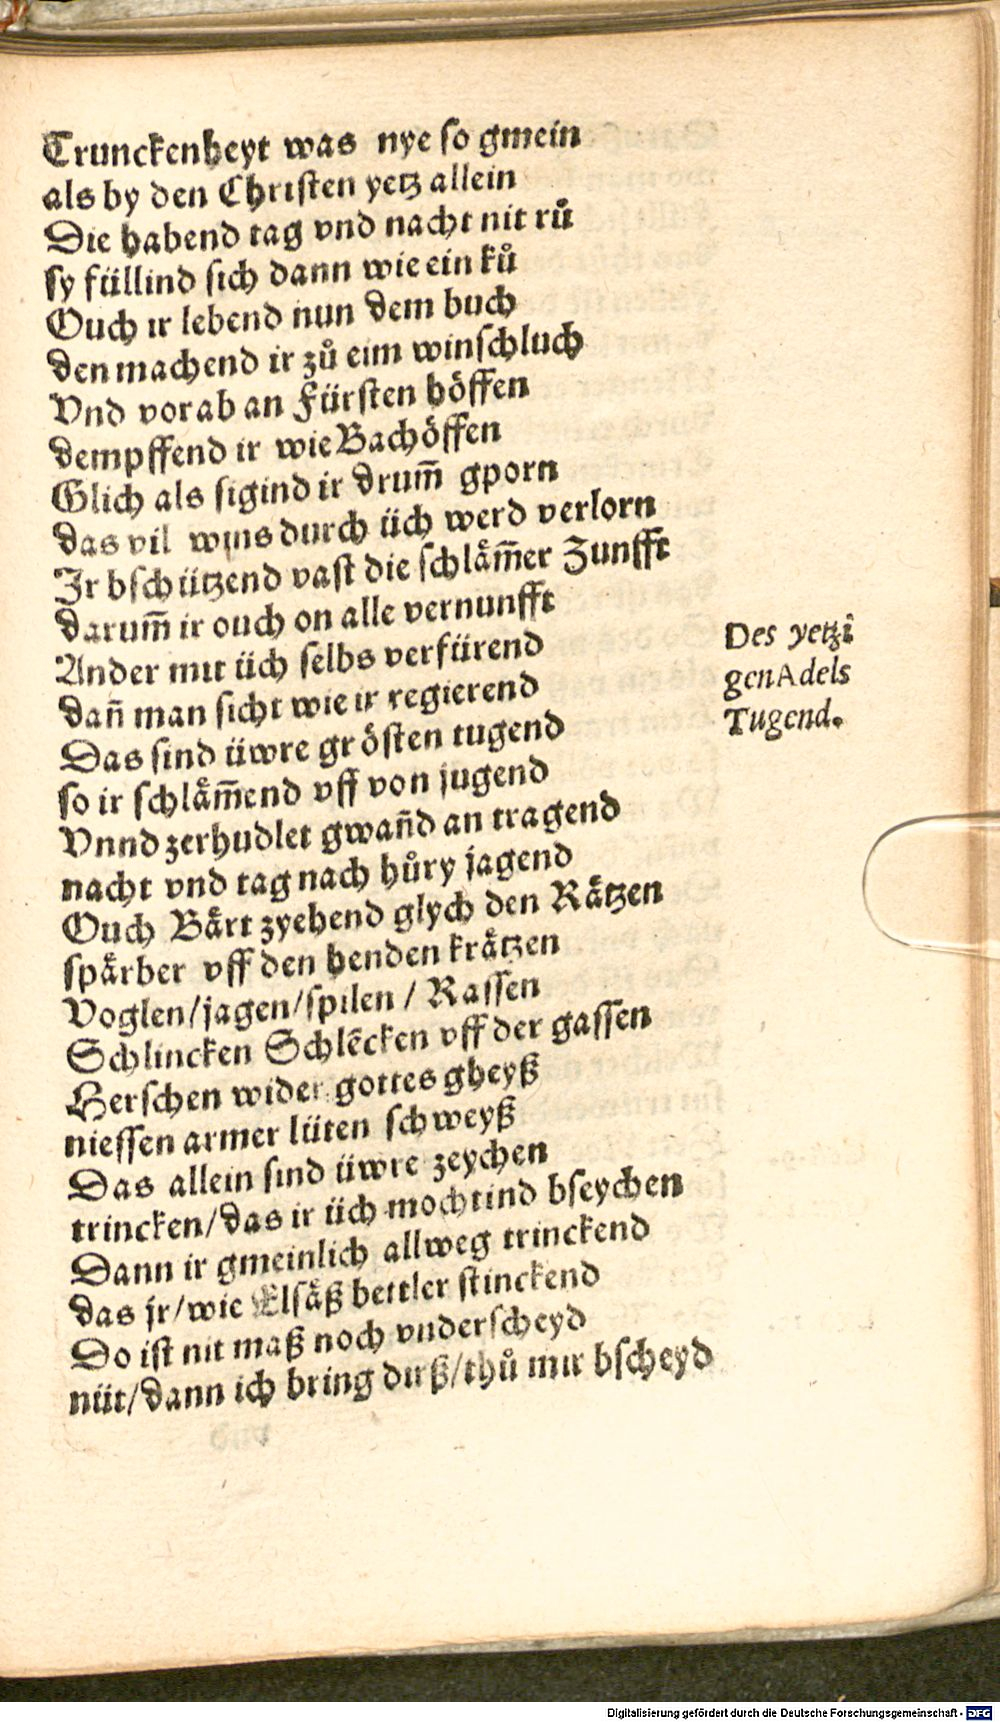 Trunckenheyt was nye so gmein
als by den Christen yetz allein
Die habend tag vnd nacht nit rů
sy füllind sich dann wie ein ků
Ouch ir lebend nun dem buch
den machend ir zů eim winschluch
Vnd vorab an Fürsten höffen
dempffend ir wie Bachöffen
Glich als sigind ir drum̃ gporn
das vil wins durch üch werd verlorn
Ir bschützend vast die schlåm̃er Zunfft
darum̃ ir ouch on alle vernunfft
Ander mit üch selbs verfürend
dañ man sicht wie ir regierend
Das sind üwre grösten tugend
so ir schlåm̃end vff von jugend
Vnnd zerhudlet gwañd an tragend
nacht vnd tag nach hůry jagend
Ouch Bårt zyehend glych den Råtzen
spårber vff den henden kråtzen
Voglen/jagen/spilen / Rassen
Schlincken Schlẽcken vff der gassen
Herschen wider gottes gheyß
niessen armer lüten schweyß
Das allein sind üwre zeychen
trincken/das ir üch mochtind bseychen
Dann ir gmeinlich allweg trinckend
das jr/wie Elsåß bettler stinckend
Do ist nit maß noch vnderscheyd
nüt/dann ich bring dirß/thů mir bscheyd
Des yetzi
gen Adels
Tugend.
Digitalisierung gefördert durch die Deutsche Forschungsgemeinschaft - DFG